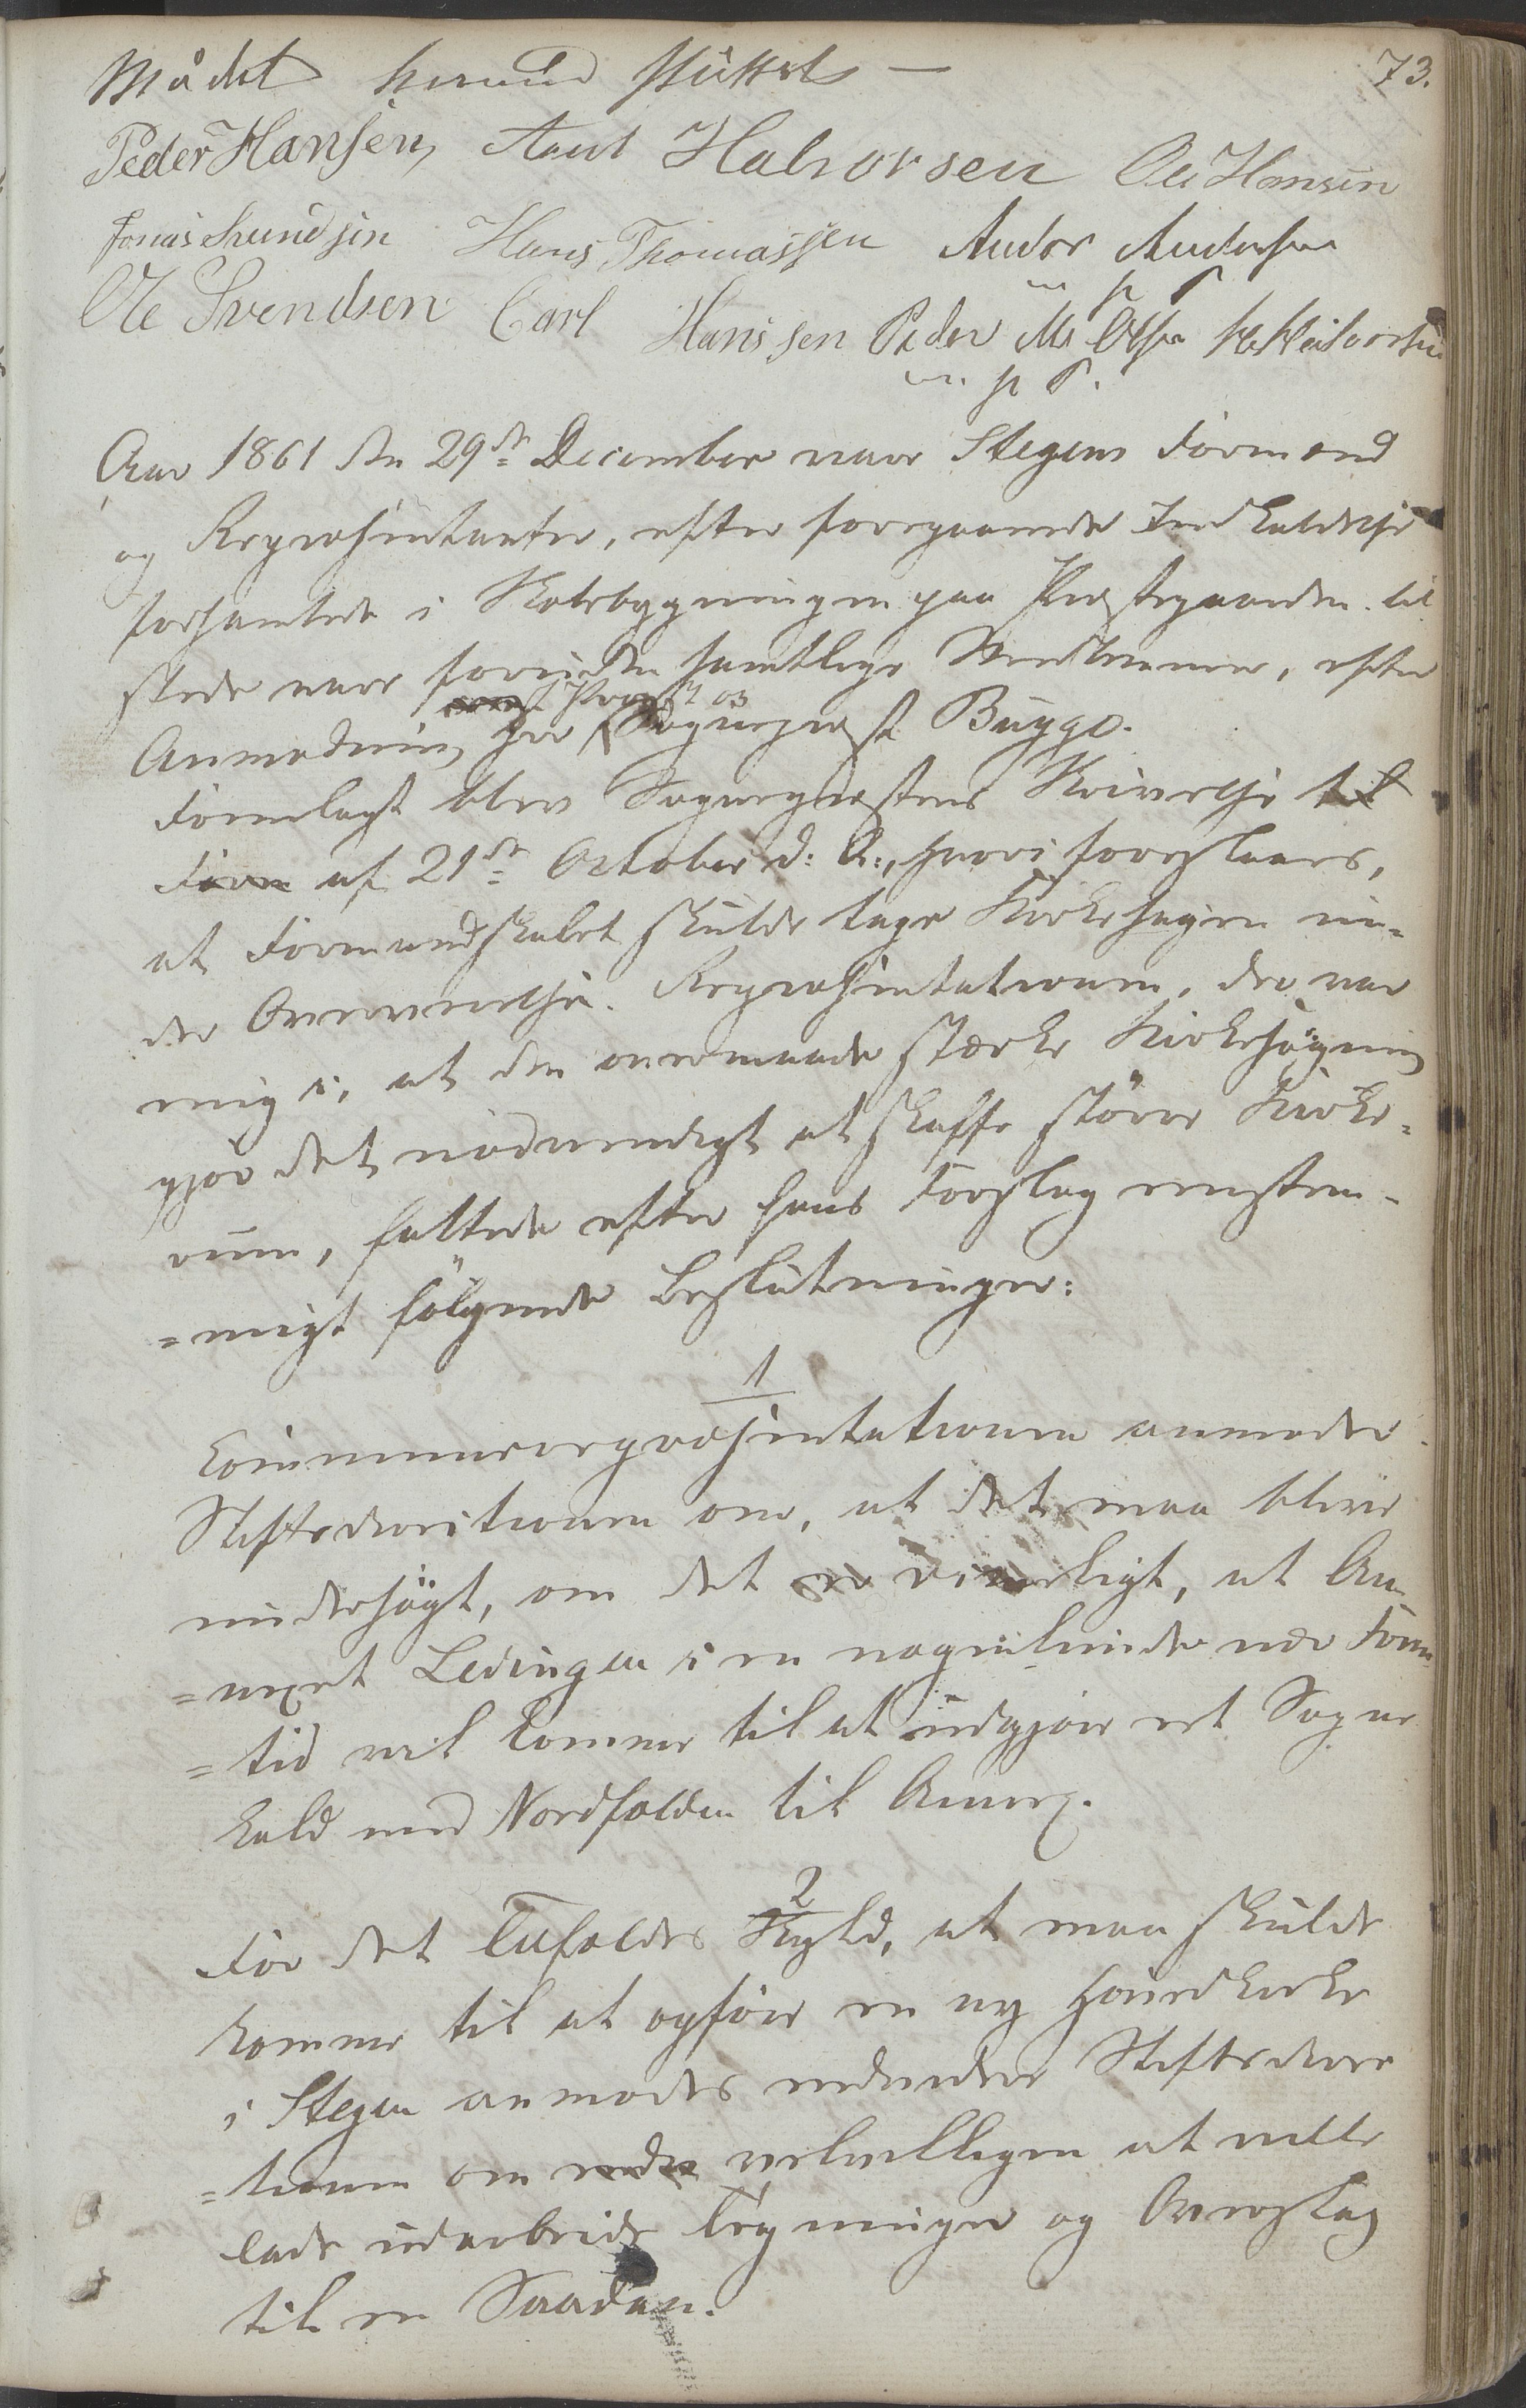 73.
Mødet hermed sluttet —
Peder Hansen, Amt Halvorsen Ole Hansen
Jonas Svendsen Hans Thomassen Ander Andersen
m p P
Ole Svendsen Carl Hanssen Peder Ms Olsen
m p P.
Aar 1861 den 29de December vare Stegens Formænd
og Repræsentanter, efter foregaaende Indkaldelse
forsamlede i Skolebygningen paa Præstegaarden. til
stede vare foruden samtlige Medlemmer, efter
Anmodning Hr Provst og Sognepræst Bugge.
Fremlagt blev Sognepræstens Skrivelse til
Form af 21de October d: A:, hvori foreslaaes,
at Formandskabet skulde tage Kirkesagen un-
der Overveielse. Repræsentationen, der var
enig i, at den overmaade stærke Kirkesøgning
gjør det nødvendigt at skaffe større Kirke-
rum, fattede efter hans Forslag eenstem-
=migt følgende Beslutninger:
1
Communerepræsentationen anmoder
Stiftsdirectionen om, at det maa blive
undersøgt, om det er rimeligt, at An-
=nexet Ledingen i en nogenlunde nær Frem-
=tid vil komme til at udgjøre et Sogne
kald med Nordfolden til Annex.
2
For det Tilfældes Skyld, at man skulde
komme til at opføre en ny Hovedkirke
i Stegen anmodes endvidere Stiftsdirec
=tionen om velvilligen at ville
lade udarbeide Tegninger og Overslag
til en Saadan.